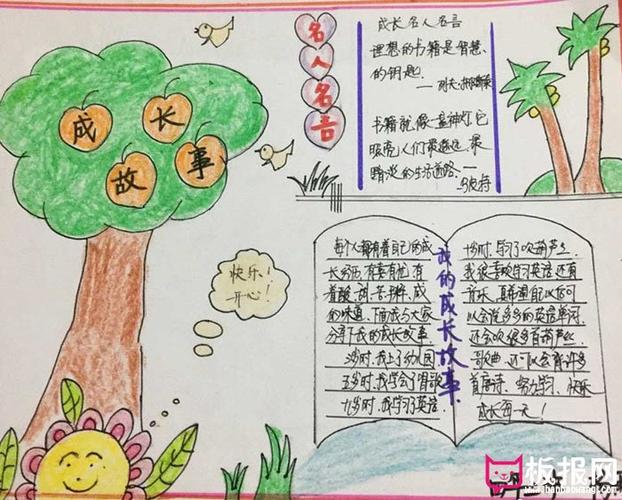 成长故事
名人名言
成长名人名言
理想的书籍是智慧
的钥匙
书籍就像一盏神灯,它
照亮人们最遥远、最
暗淡的生活道路
快乐!
开心!
我的成长故事
每个人都有着自己的成
长经历,有喜有忧,有
着酸、甜、苦、辣、咸
的味道,下面我与大家
分享下我的成长故事。
3岁时,我上了幼儿园
五岁时,我学会了唱歌
九岁时,我学习了英语
十岁时,学习了吹葫芦丝。
我很喜欢学习英语还有
音乐,真希望自己以后可
以会说多多的英语单词
还会吹很多首葫芦丝
歌曲,还可以会背许多
首唐诗,努力学习,快乐
成长每一天!
板报网